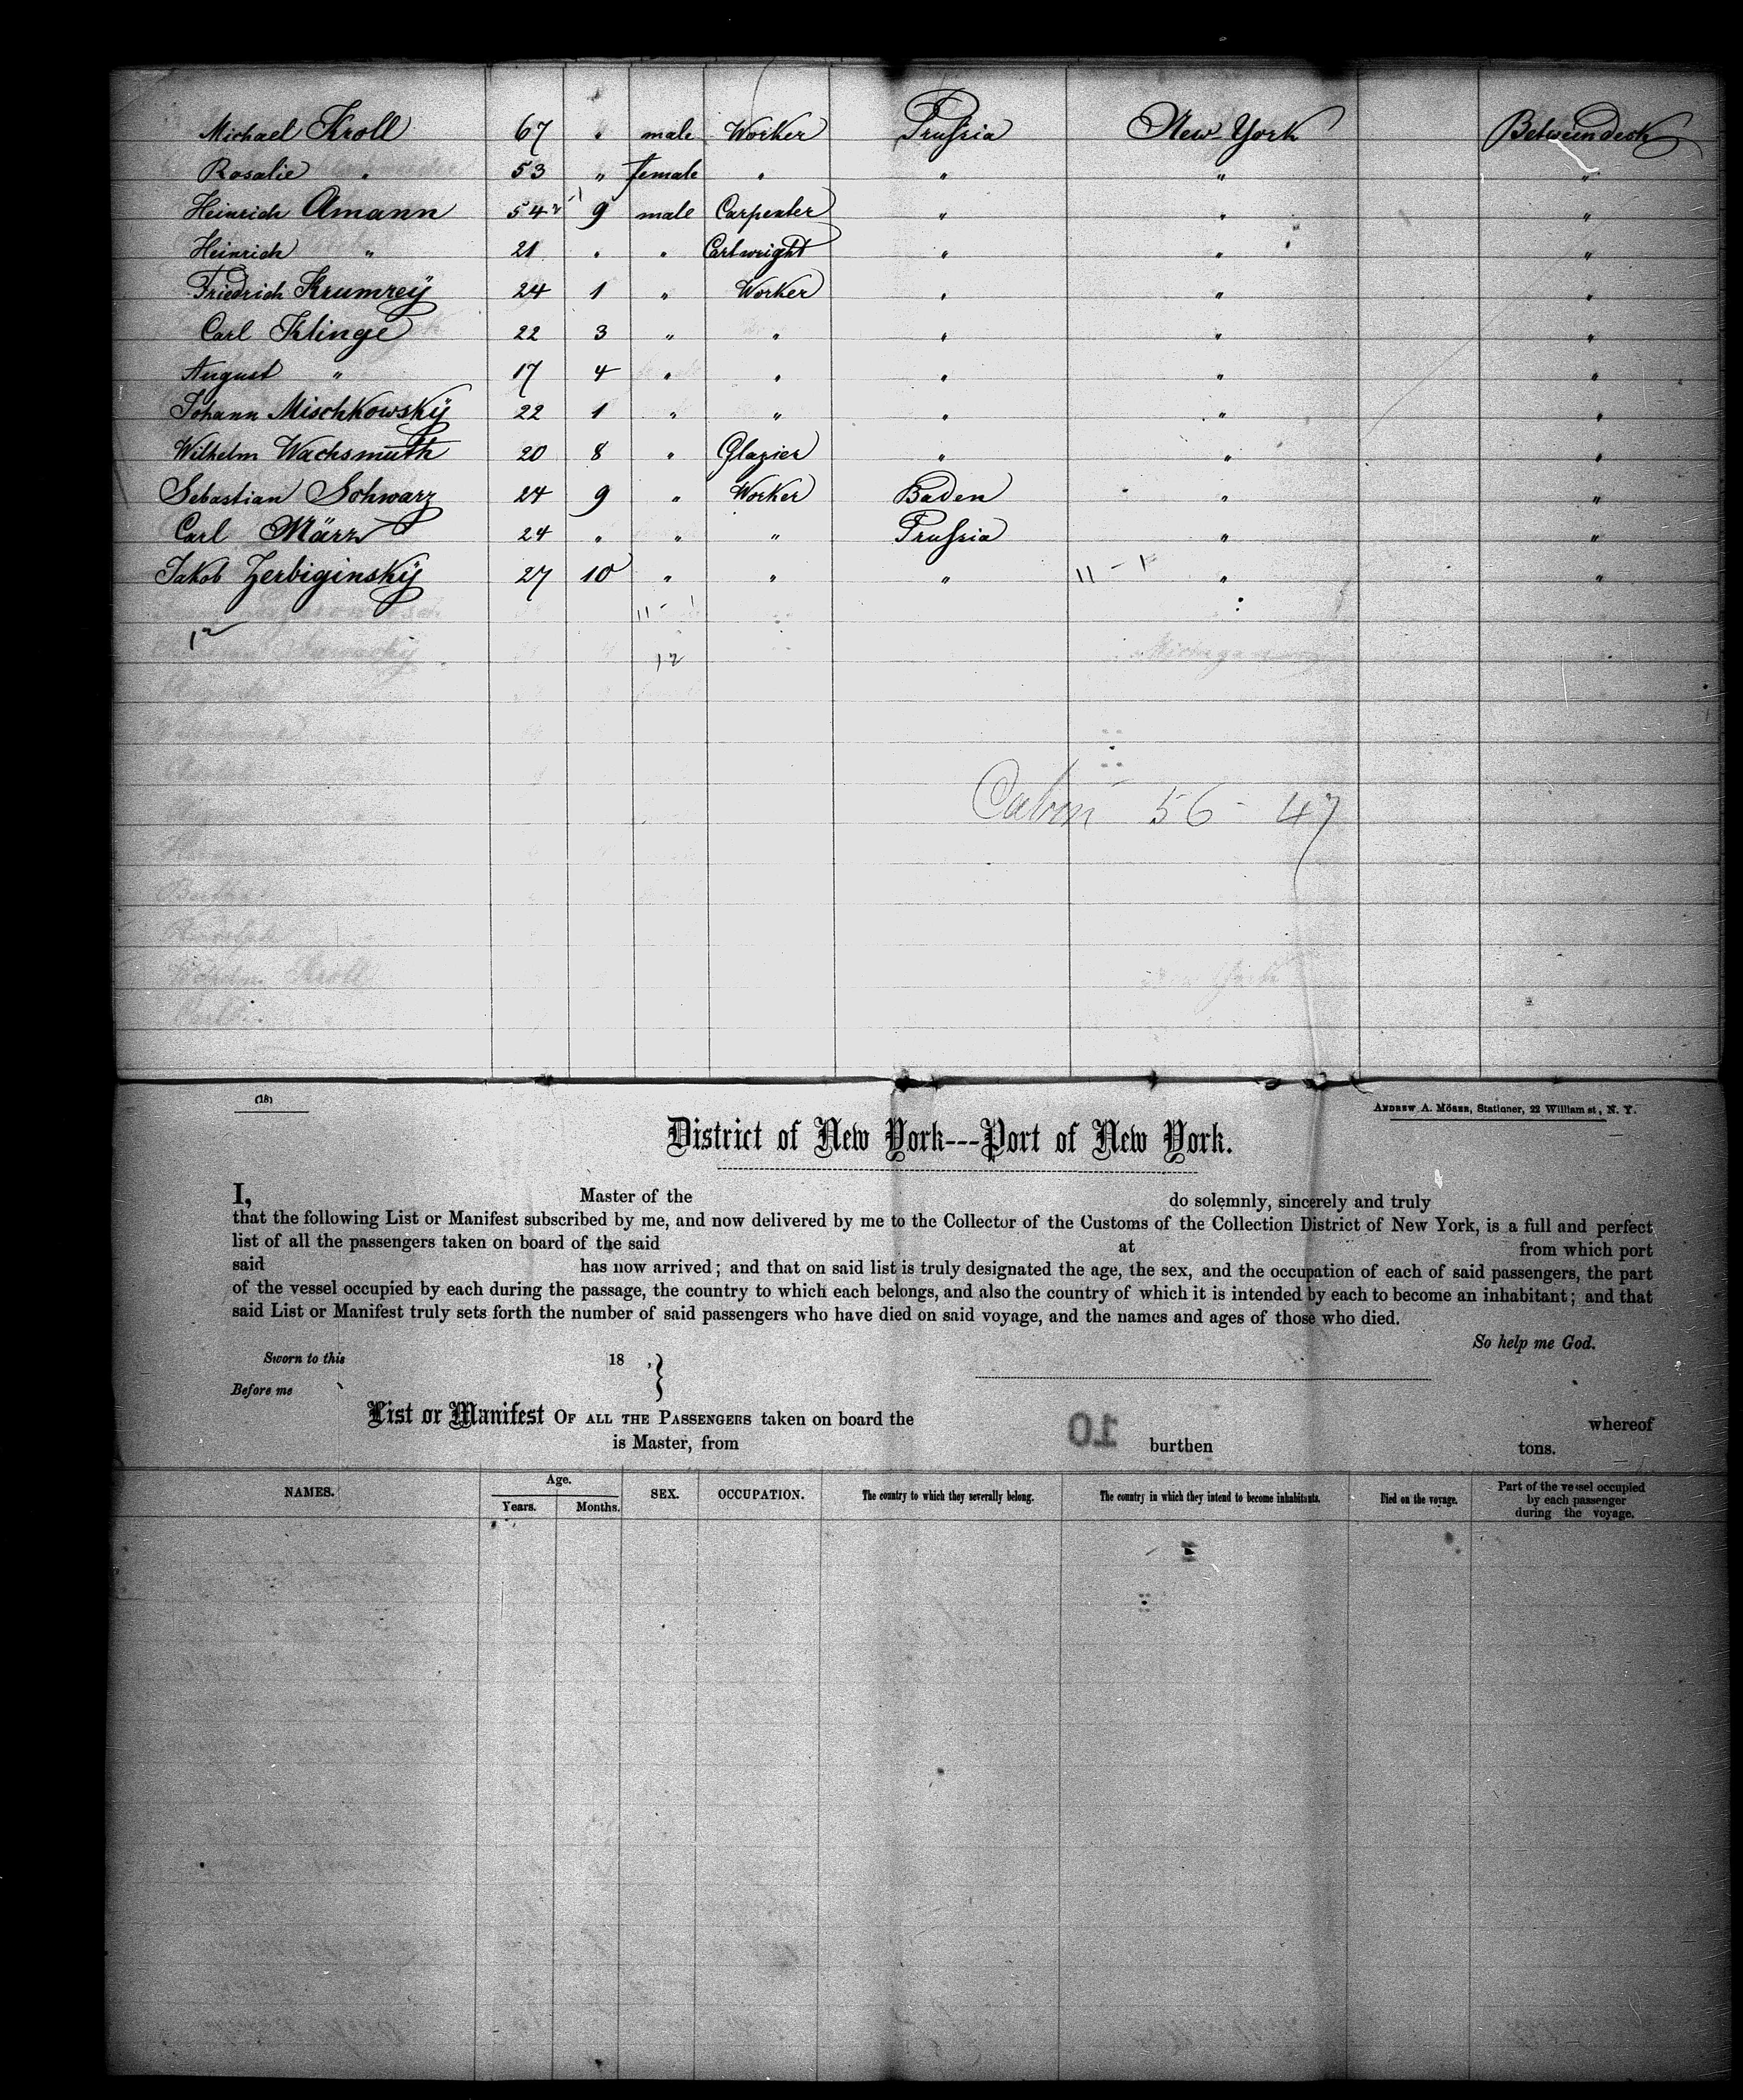 Michael Kroll 67 " male Worker Prussia New-York Betweendeck
Rosalie " 53 " female " " " "
Heinrich Amann 54 9 male Carpenter " " "
Heinrich " 21 " " Cartwright " " "
Friedrich Krumrey 24 1 " Worker " " "
Carl Klinge 22 3 " " " " "
August " 17 4 " " " " "
Johann Mischkowsky 22 1 " " " " "
Wilhelm Wachsmuth 20 8 " Glazier " " "
Sebastian Schwarz 24 9 " Worker Baden " "
Carl März 24 " " " Prussia " "
Jakob Zerbiginsky 27 10 " " " 11 - 1 " "
11 - 1
12
12
Cabin 56 - 47
(18)
ANDREW A. MÖSER, Stationer, 22 William st., N. Y.
District of New York---Port of New York.
I, Master of the do solemnly, sincerely and truly
that the following List or Manifest subscribed by me, and now delivered by me to the Collector of the Customs of the Collection District of New York, is a full and perfect
list of all the passengers taken on board of the said at from which port
said has now arrived; and that on said list is truly designated the age, the sex, and the occupation of each of said passengers, the part
of the vessel occupied by each during the passage, the country to which each belongs, and also the country of which it is intended by each to become an inhabitant; and that
said List or Manifest truly sets forth the number of said passengers who have died on said voyage, and the names and ages of those who died.
So help me God.
Sworn to this 18 ,}
Before me
List or Manifest OF ALL THE PASSENGERS taken on board the whereof
is Master, from burthen tons.
10
NAMES. Age. Years. Months. SEX. OCCUPATION. The country to which they severally belong. The country in which they intend to become inhabitants. Died on the voyage. Part of the vessel occupied by each passenger during the voyage.